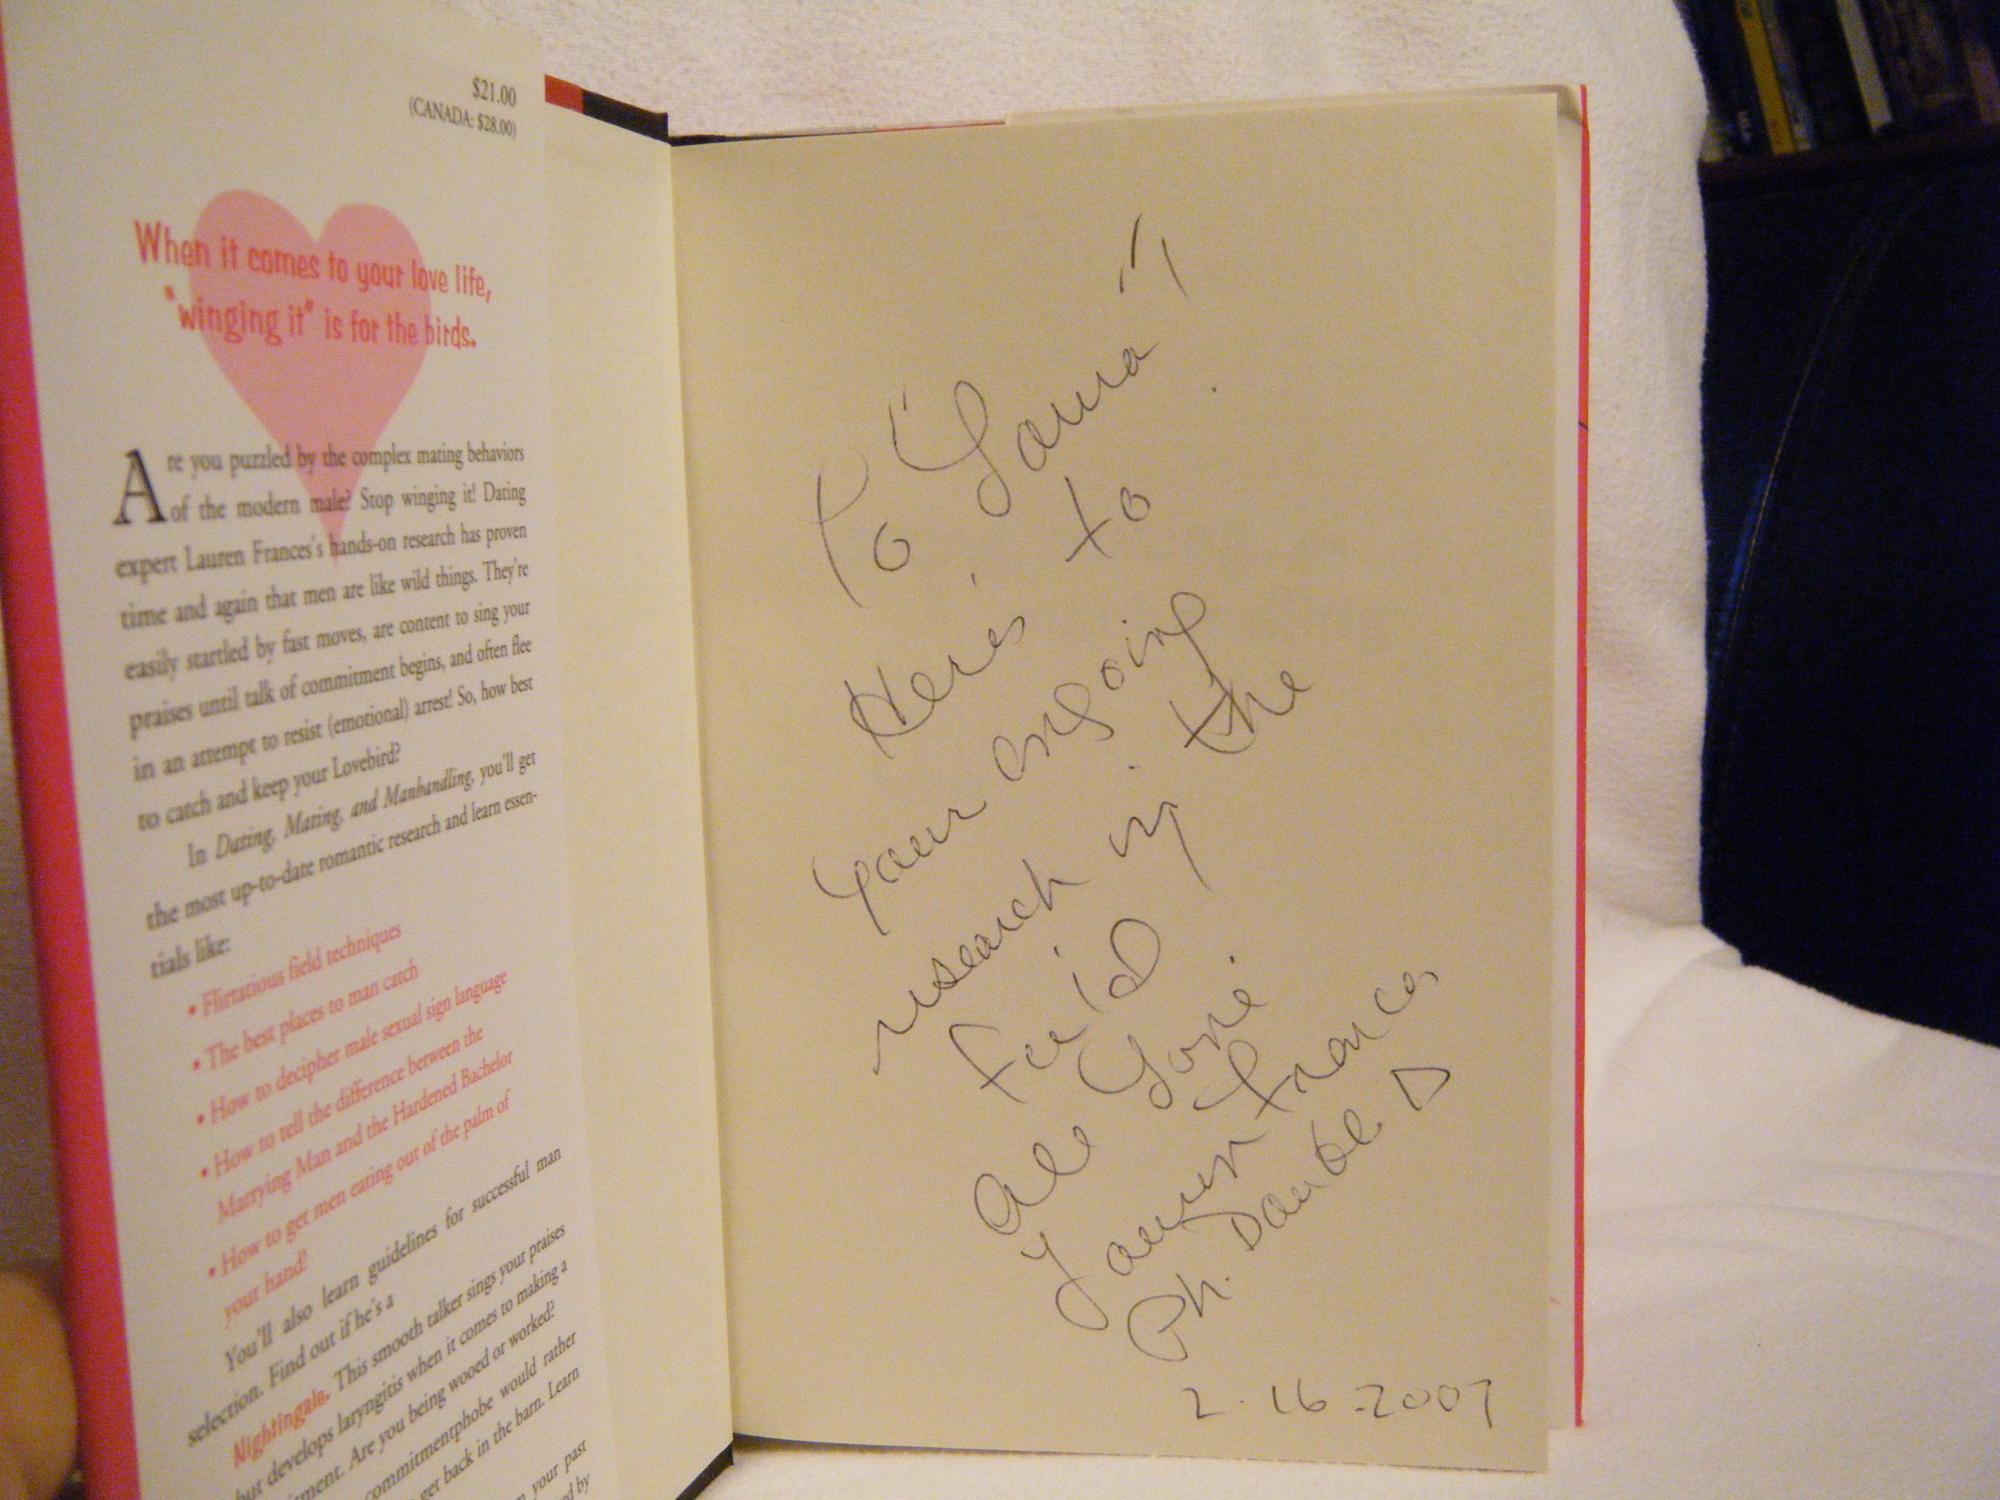 $21.00
(CANADA: $28.00)
When it comes to your love life,
"winging it" is for the birds.
Are you puzzled by the complex mating behaviors
of the modern male? Stop winging it! Dating
expert Lauren Frances's hands-on research has proven
time and again that men are like wild things. They're
easily startled by fast moves, are content to sing your
praises until talk of commitment begins, and often flee
in an attempt to resist (emotional) arrest! So, how best
to catch and keep your Lovebird?
In Dating, Mating, and Manhandling, you'll get
the most up-to-date romantic research and learn essen-
tials like:
• Flirtatious field techniques
• The best places to man catch
• How to decipher male sexual sign language
• How to tell the difference between the
Marrying Man and the Hardened Bachelor
• How to get men eating out of the palm of
your hand!
You'll also learn guidelines for successful man
selection. Find out if he's a
Nightingale. This smooth talker sings your praises
but develops laryngitis when it comes to making a
Are you being wooed or worked?
commitmentphobe would rather
get back in the barn. Learn
your past
by
To "Laura"
Here's to
your ongoing
research in the
field
Lauren Frances
Ph. Double D
2.16.2007